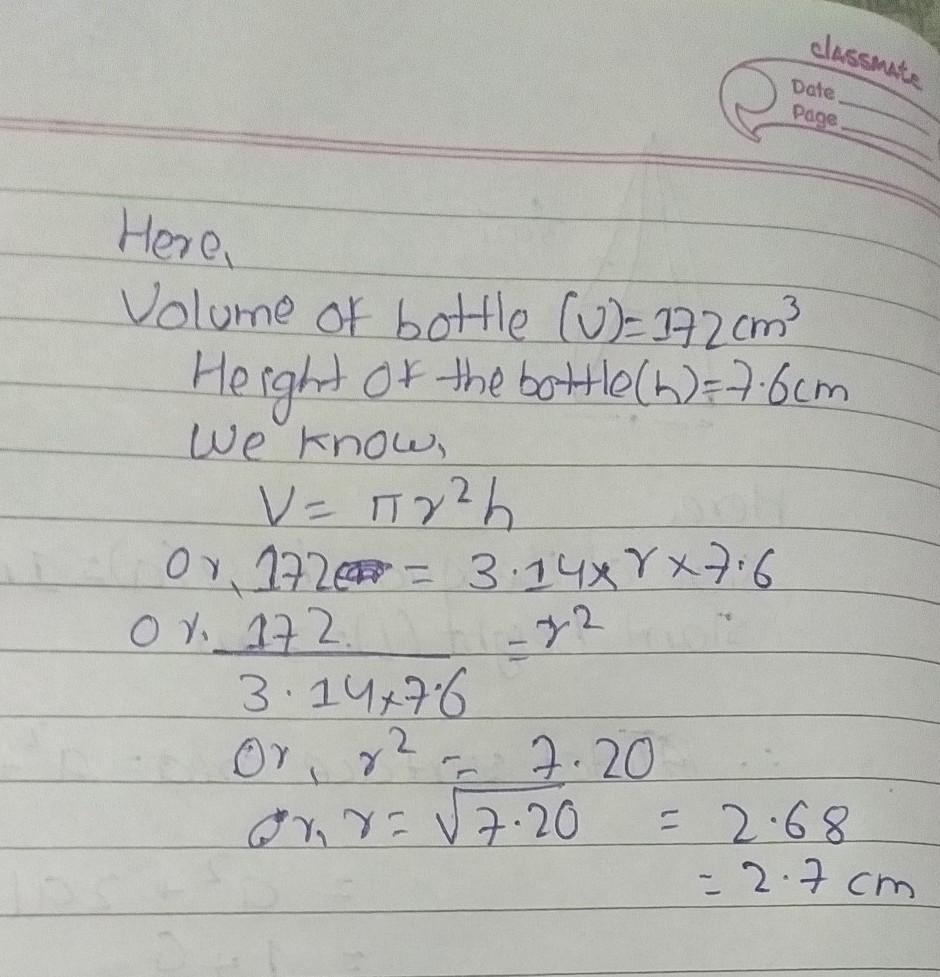 classmate
Date
Page
Here,
Volume of bottle (V)=172cm³
Height of the bottle(h)=7.6cm
We know,
V= πr²h
Or, 172 = 3.14×r×7.6
Or. 172 = r²
3.14×7.6
Or, r² = 7.20
Or, r= √7.20 = 2.68
= 2.7 cm